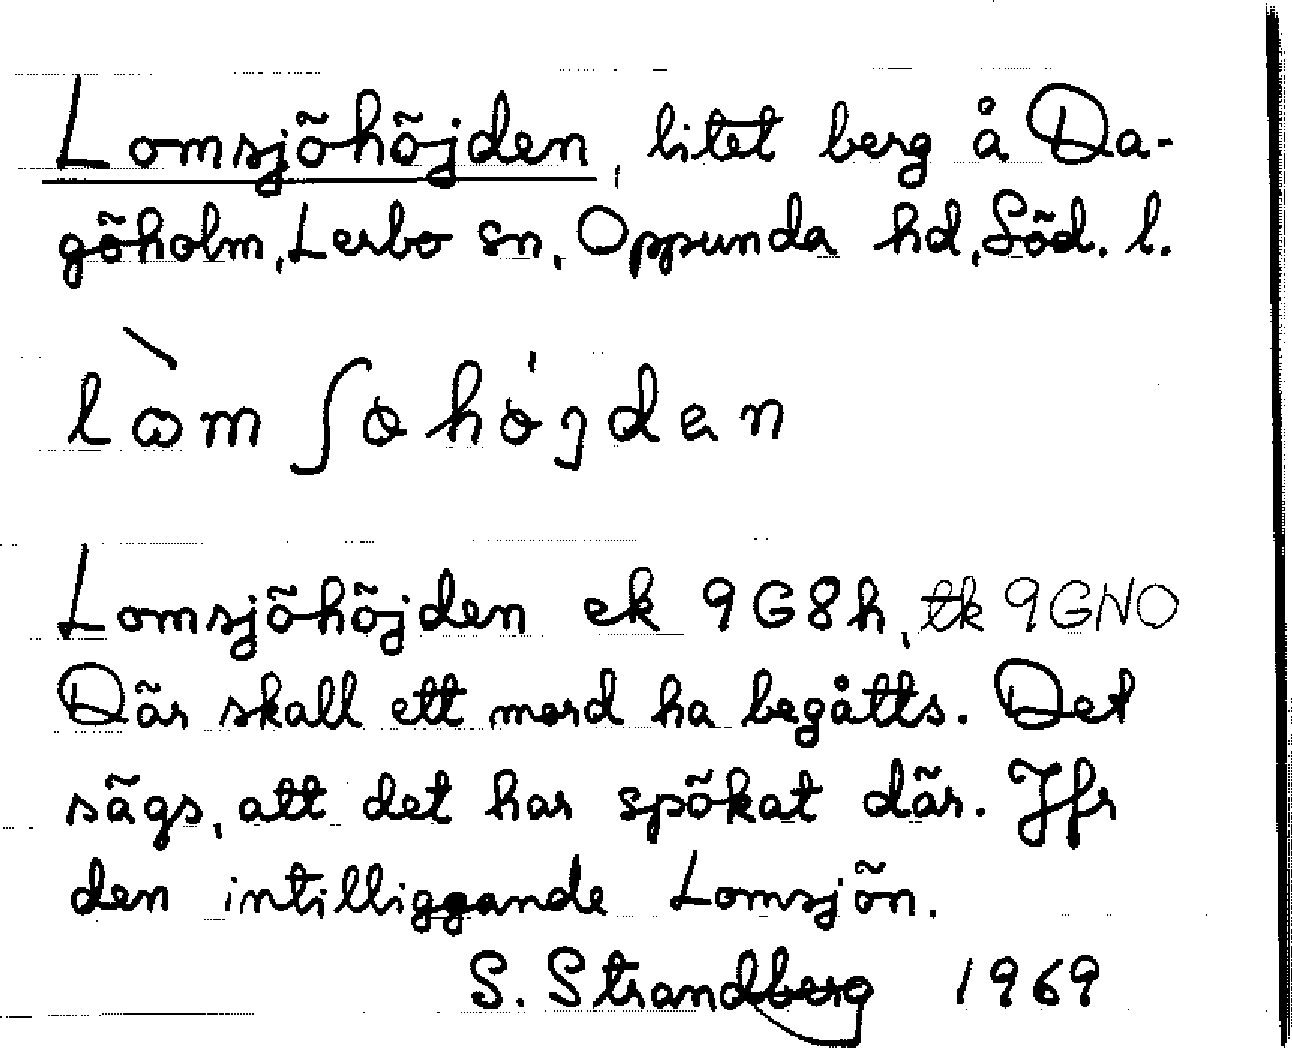 Lomsjöhöjden, litet berg å Da-
göholm, Lerbo sn, Oppunda hd, Söd. l.
Lomsjöhöjden ek 9G8h, tk 9GNO
Där skall ett mord ha begåtts. Det
sägs, att det har spökat där. Jfr
den intilliggande Lomsjön.
S. Strandberg 1969